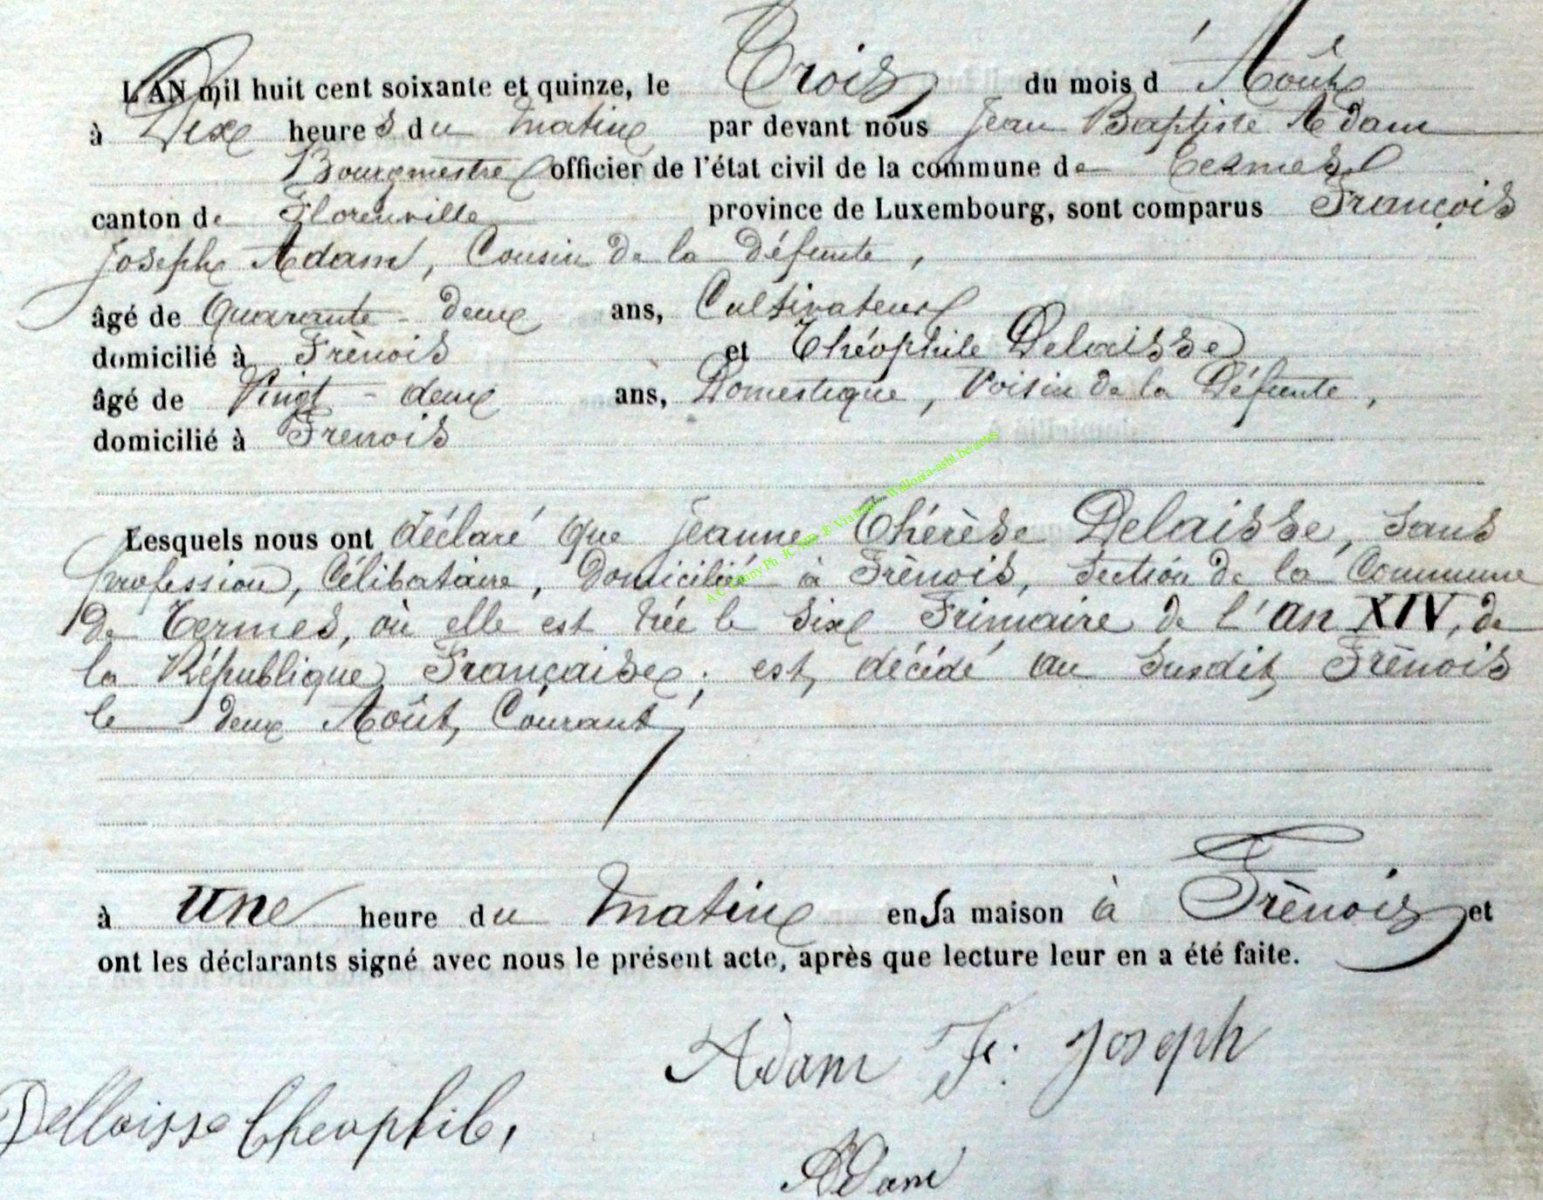 L'AN mil huit cent soixante et quinze, le Trois du mois d'Août
à Dix heures du matin par devant nous Jean Baptiste Adam
Bourgmestre officier de l'état civil de la commune de Termes
canton de Florenville province de Luxembourg, sont comparus François
Joseph Adam, Cousin de la défunte,
âgé de Quarante-deux ans, Cultivateur
domicilié à Frênois et Théophile Delaisse
âgé de Vingt-deux ans, Domestique, Voisin de la Défunte,
domicilié à Frênois
Lesquels nous ont déclaré que Jeanne Thérèse Delaisse, sans
profession, Célibataire, Domiciliée à Frênois, Section de la Commune
de Termes, où elle est née le six Frimaire de l'an XIV, de
la République Française; est, décédé au susdit Frênois
le deux Août, Courant,
à une heure du matin en sa maison à Frênois et
ont les déclarants signé avec nous le présent acte, après que lecture leur en a été faite.
Adam F. Joseph
Dellaisse Theophile,
Adam